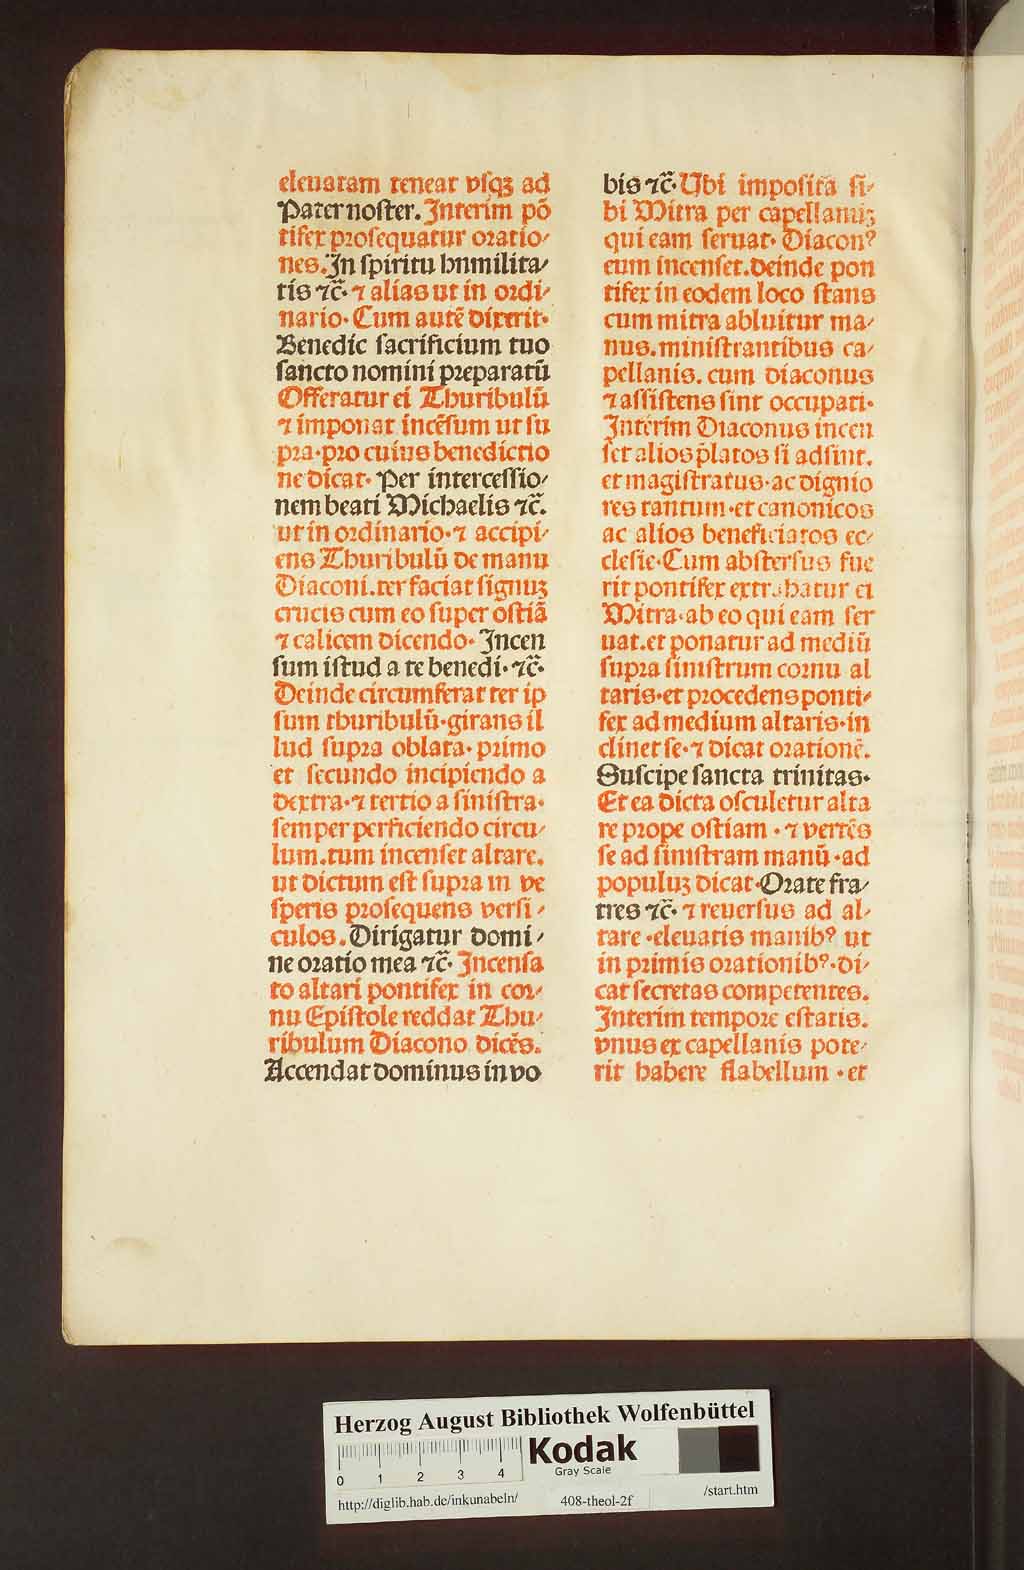 eleuatam teneat vsqꝫ ad
Pater noster. Interim põ
tifex prosequatur oratio⸗
nes. In spiritu hnmilita⸗
tis ⁊c̃· ⁊ alias ut in ordi⸗
nario· Cum autẽ dixerit·
Benedic sacrificium tuo
sancto nomini preparatũ
Offeratur ei Thuribulũ
⁊ imponat incẽsum ut su
pra· pro cuius benedictio
ne dicat· Per intercessio⸗
nem beati Michaelis ⁊c̃.
ut in ordinario· ⁊ accipi⸗
ens Thuribulũ de manu
Diaconi. ter faciat signuꝫ
crucis cum eo super ostiã
⁊ calicem dicendo· Incen
sum istud a te benedi· ⁊c̃·
Deinde circumferat ter ip
sum thuribulũ· girans il
lud supra oblata· primo
et secundo incipiendo a
dextra· ⁊ tertio a sinistra·
semper perficiendo circu⸗
lum. tum incenset altare.
ut dictum est supra in ve
speris prosequens versi⸗
culos. Dirigatur domi⸗
ne oratio mea ⁊c̃· Incensa
to altari pontifex in cor⸗
nu Epistole reddat Thu⸗
ribulum Diacono dicẽs.
Accendat dominus in vo
bis ⁊c̃· Ubi imposita si⸗
bi Mitra per capellanuꝫ
qui eam seruat· Diaconꝰ
eum incenset. deinde pon
tifex in eodem loco stans
cum mitra abluitur ma⸗
nus. ministrantibus ca⸗
pellanis. cum diaconus
⁊ assistens sint occupati·
Interim Diaconus incen
set alios p̃latos si adsint.
et magistratus· ac dignio
res tantum· et canonicos
ac alios beneficiatos ec⸗
clesie· Cum abstersus fue
rit pontifex extrahatur ei
Mitra· ab eo qui eam ser
uat. et ponatur ad mediũ
supra sinistrum cornu al
taris· et procedens ponti⸗
fex ad medium altaris· in
clinet se· ⁊ dicat orationẽ.
Suscipe sancta trinitas·
Et ea dicta osculetur alta
re prope ostiam · ⁊ vertẽs
se ad sinistram manũ · ad
populuꝫ dicat· Orate fra⸗
tres ⁊c̃· ⁊ reuersus ad al⸗
tare · eleuatis manibꝰ ut
in primis orationibꝰ· di⸗
cat secretas competentes.
Interim tempore estatis.
vnus ex capellanis pote⸗
rit habere flabellum · et
Herzog August Bibliothek Wolfenbüttel
Kodak
Gray Scale
0 1 2 3 4
http://diglib.hab.de/inkunabeln/ 408-theol-2f /start.htm